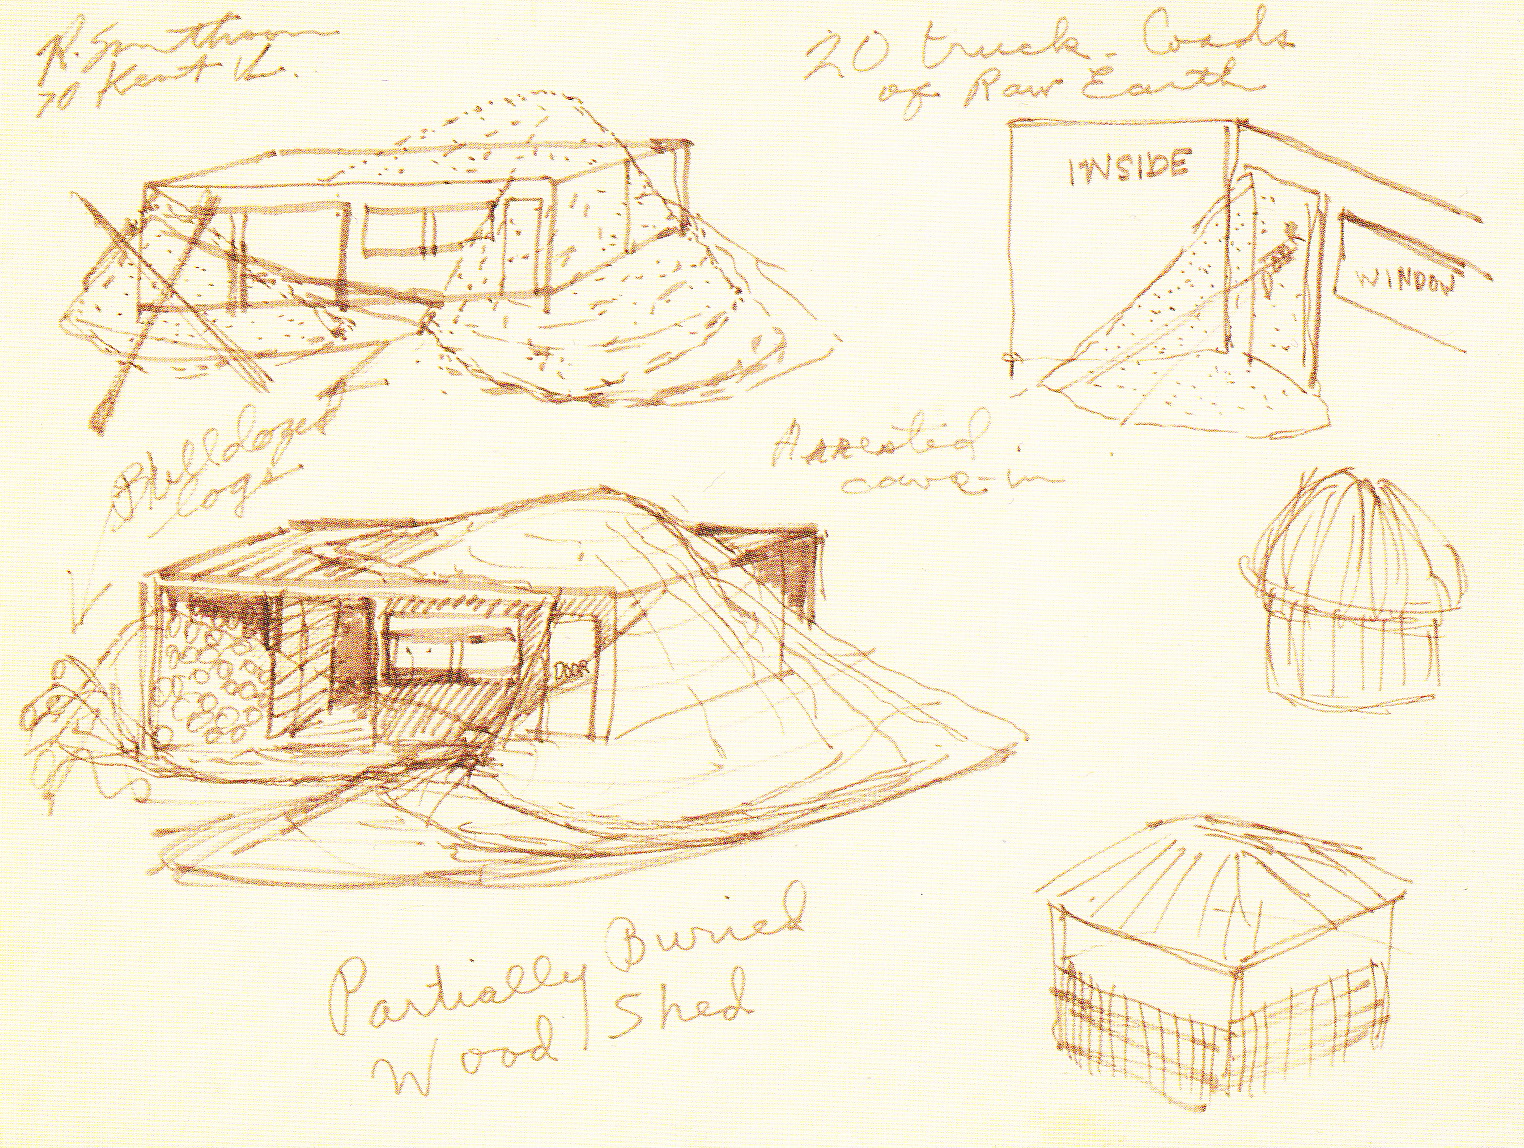 R. Smithson
70 Kent U.
20 truck-loads
of Raw Earth
INSIDE
DOOR
WINDOW
Arrested
cave-in
Bulldozed
logs
DOOR
Partially Buried
Wood Shed